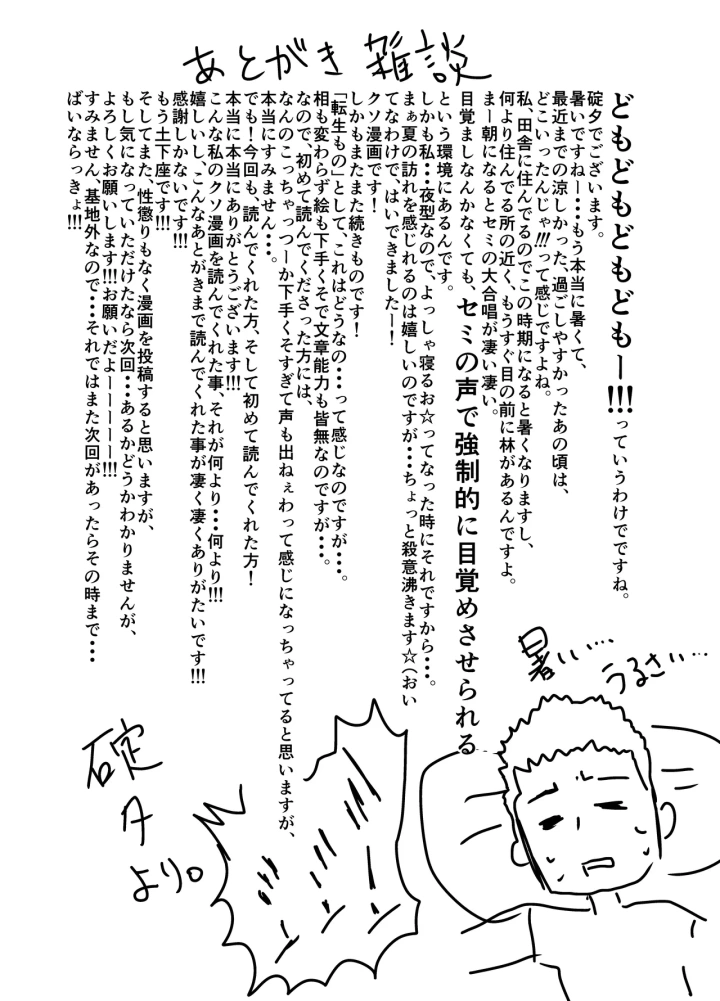 あとがき雑談
どもどもどもどもー!!!っていうわけでですね。
碇夕でございます。
暑いですねー・・・もう本当に暑くて、
最近までの涼しかった、過ごしやすかったあの頃は、
どこいったんじゃ!!!って感じですよね。
私、田舎に住んでるのでこの時期になると暑くなりますし、
何より住んでる所の近く、もうすぐ目の前に林があるんですよ。
まー朝になるとセミの大合唱が凄い凄い。
目覚ましなんかなくても、セミの声で強制的に目覚めさせられる
という環境にあるんです。
しかも私・・・夜型なので、よっしゃ寝るお☆ってなった時にそれですから・・・。
まぁ夏の訪れを感じれるのは嬉しいのですが・・・ちょっと殺意沸きます☆(おい
てなわけで、はいできましたー!
クソ漫画です!
しかもまたまた続きものです!
「転生もの」として、これはどうなの・・・って感じなのですが・・・。
相も変わらず絵も下手くそで文章能力も皆無なのですが・・・。
なので、初めて読んでくださった方には、
なんのこっちゃっつーか下手くそすぎて声も出ねぇわって感じになっちゃってると思いますが、
本当にすみません・・・。
でも!今回も、読んでくれた方、そして初めて読んでくれた方!
本当に本当にありがとうございます!!!
こんな私のクソ漫画を読んでくれた事、それが何より・・・何より!!!
嬉しいし、こんなあとがきまで読んでくれた事が凄く凄くありがたいです!!!
感謝しかないです!!!
もう土下座です!!!
そしてまた、性懲りもなく漫画を投稿すると思いますが、
もし気になっていただけたなら次回・・・あるかどうかわかりませんが、
よろしくお願いします!!!お願いだよーーーーー!!!
すみません、基地外なので・・・それではまた次回があったらその時まで・・・
ばいならっきょ!!!
暑い…
うるさい…
ミーンミーンミーン
碇
夕
より。